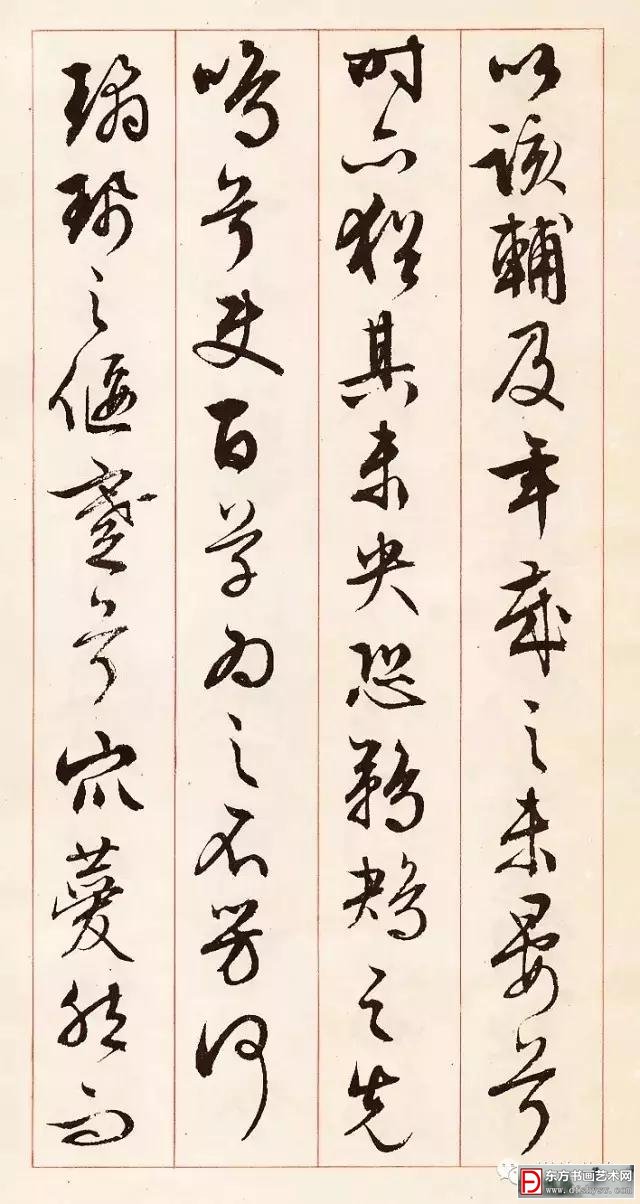 以該輔及年歲之未晏兮
时亦猶其未央恐鵜鴂之先
鳴兮使百草為之不芳何
瓊珮之偃蹇兮眾薆然而
东方书画艺术网